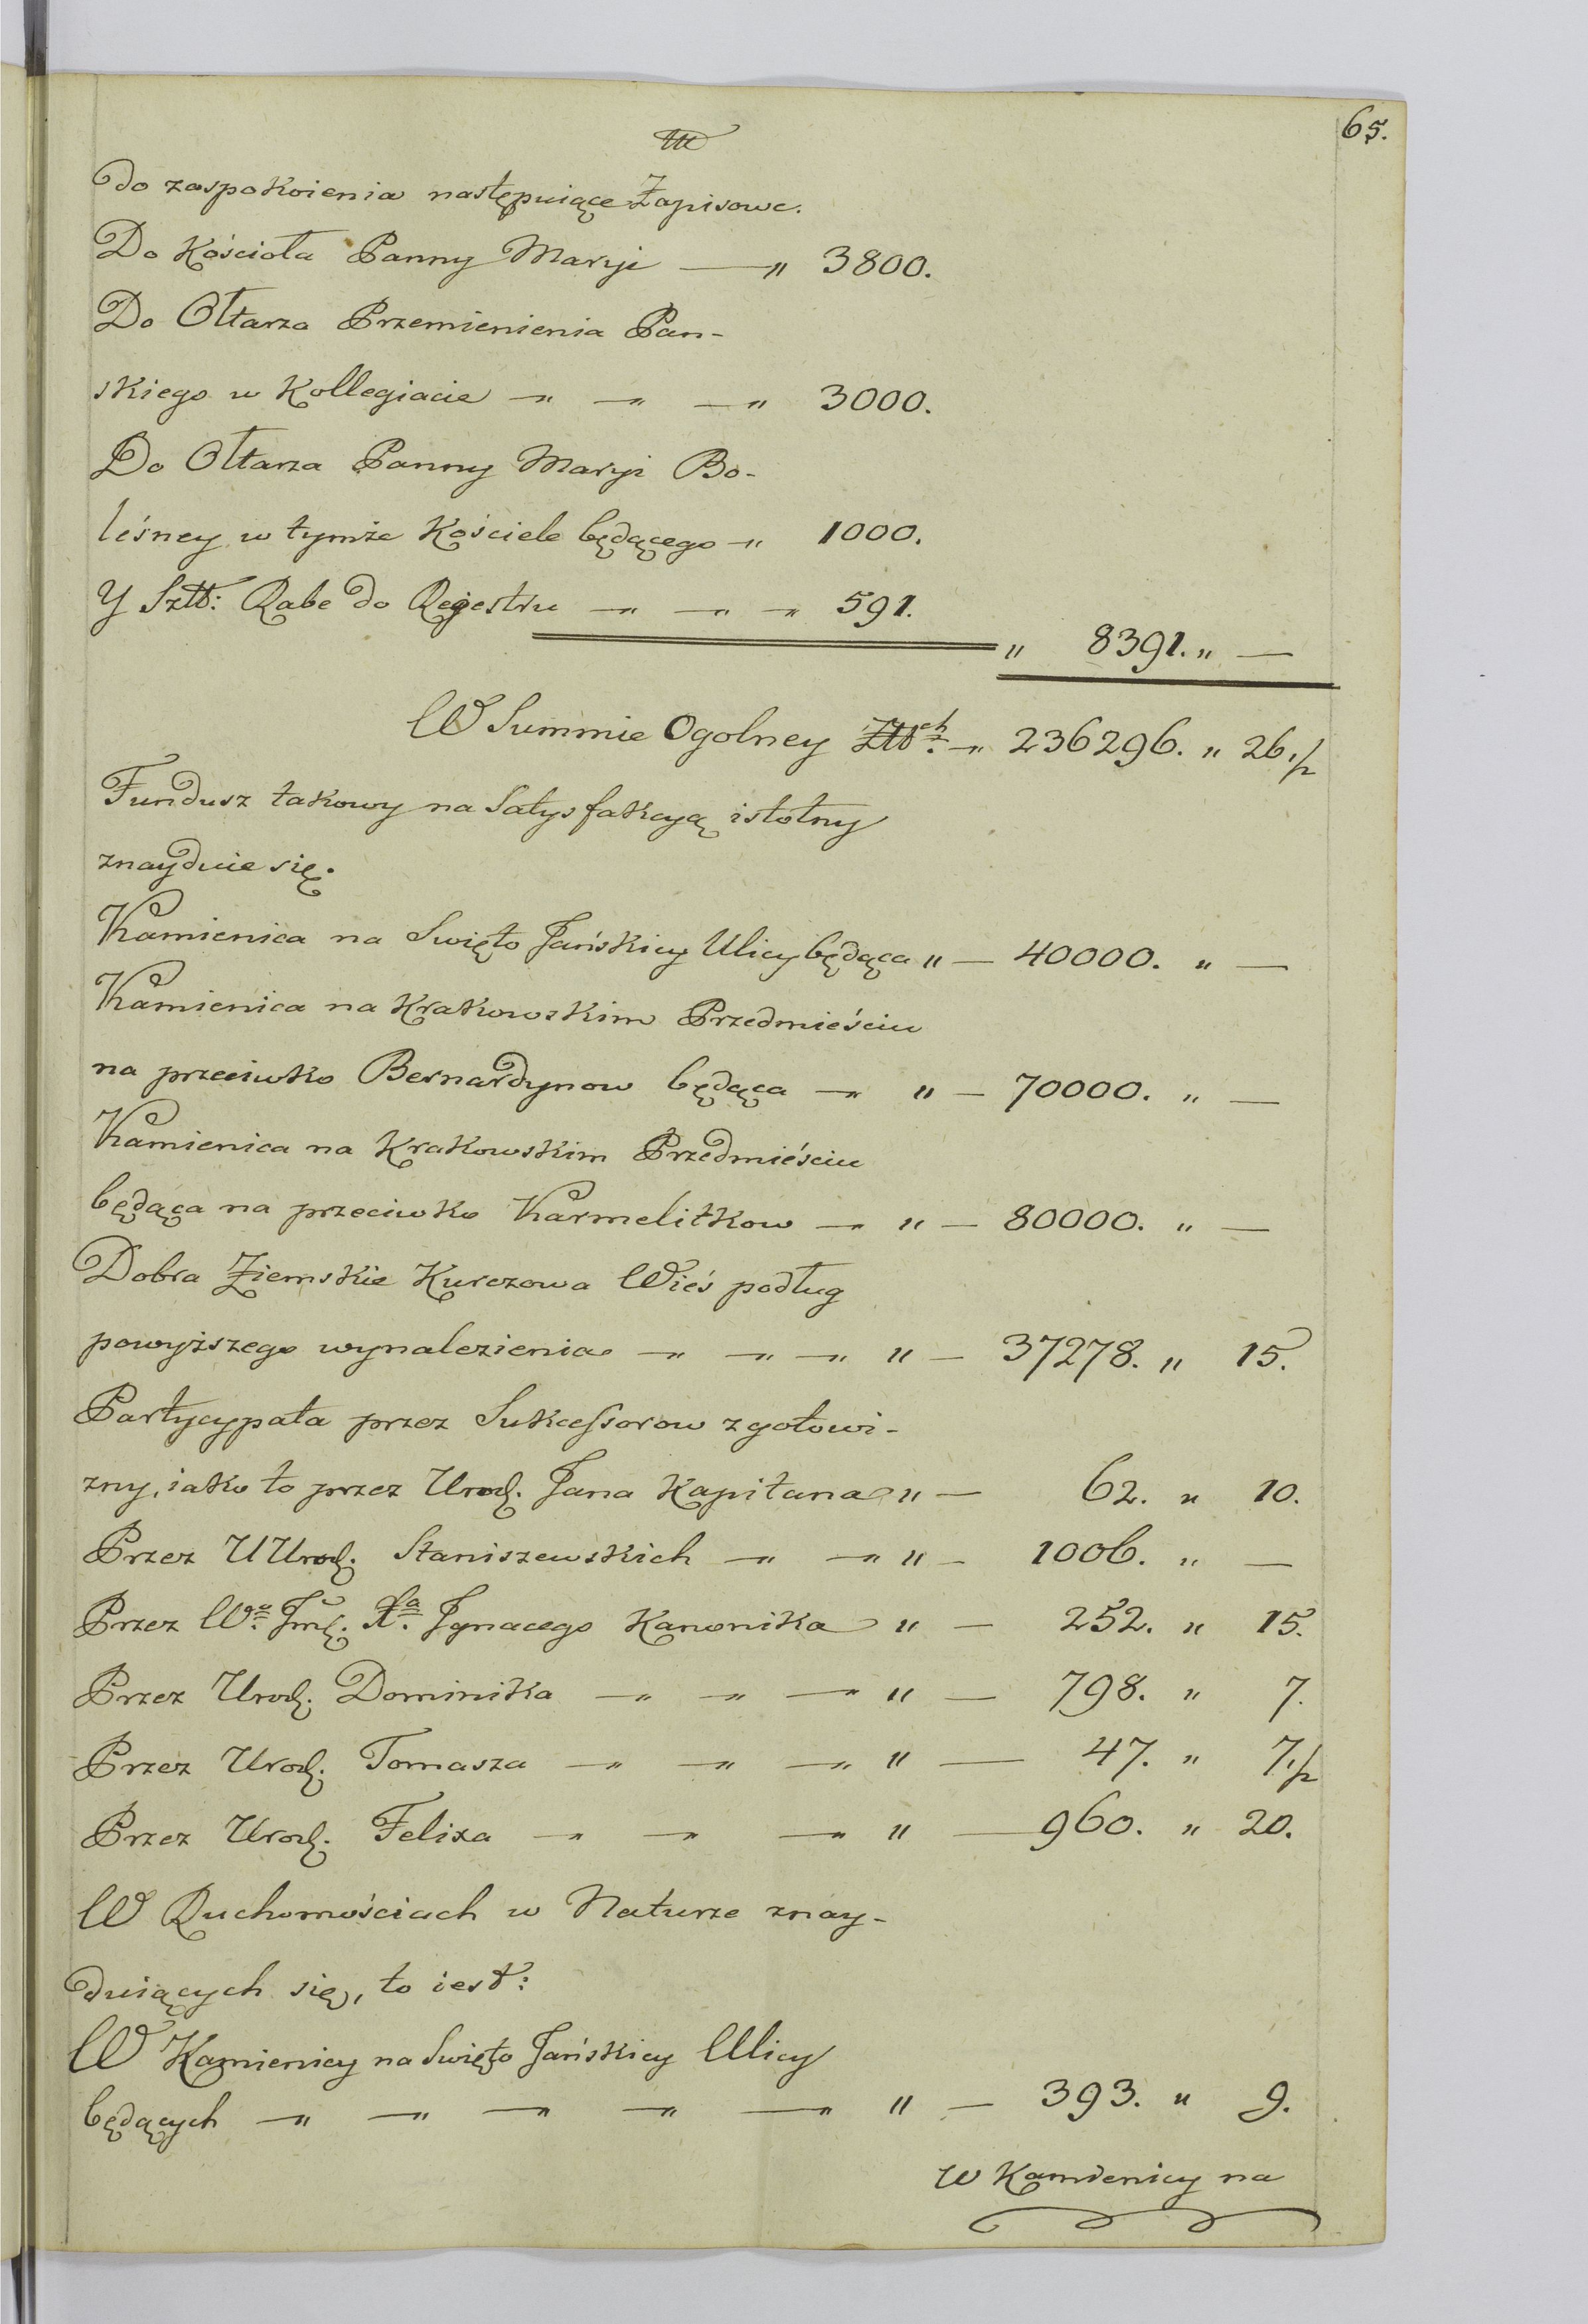 65.
do zaspokoienia następuiące Zapisowe.
Do Kościoła Panny Maryi — " 3800.
Do Ołtarza Przemienienia Pan-
skiego w Kollegiacie — " — " — " 3000.
Do Ołtarza Panny Maryi Bo-
leśney w tymże Kościele będącego — " 1000.
Y Sztt: Rabe do Regestru — " — " — " 591.
" 8391. " —
W Summie Ogolney Złłch. — " 236296. " 26.½
Fundusz takowy na Satysfakcyą istotny
znayduie się.
Kamienica na Swięto Jańskiey Ulicy będąca " — 40000. " —
Kamienica na Krakowskim Przedmieściu
na przeciwko Bernardynow będąca — " " — 70000. " —
Kamienica na Krakowskim Przedmieściu
będąca na przeciwko Karmelitkow — " " — 80000. " —
Dobra Ziemskie Kurczowa Wieś podług
powyższego wynalezienia — " — " — " " — 37278. " 15.
Partycypata przez Sukcessorow z gotowi-
zny, iako to przez Urodz. Jana Kapitana " — 62. " 10.
Przez UUrodz. Staniszewskich — " — " " — 1006. " —
Przez Wo. Jmć. Xa. Jgnacego Kanonika " — 252. " 15.
Przez Urodz. Dominika — " — " — " " — 798. " 7.
Przez Urodz. Tomasza — " — " — " " — 47. " 7.½
Przez Urodz. Felixa — " — " — " " — 960. " 20.
W Ruchomościach w Naturze znay-
duiących się, to iest:
W Kamienicy na Swięto Jańskiey Ulicy
będących — " — " — " — " — " " — 393. " 9.
W Kamienicy na